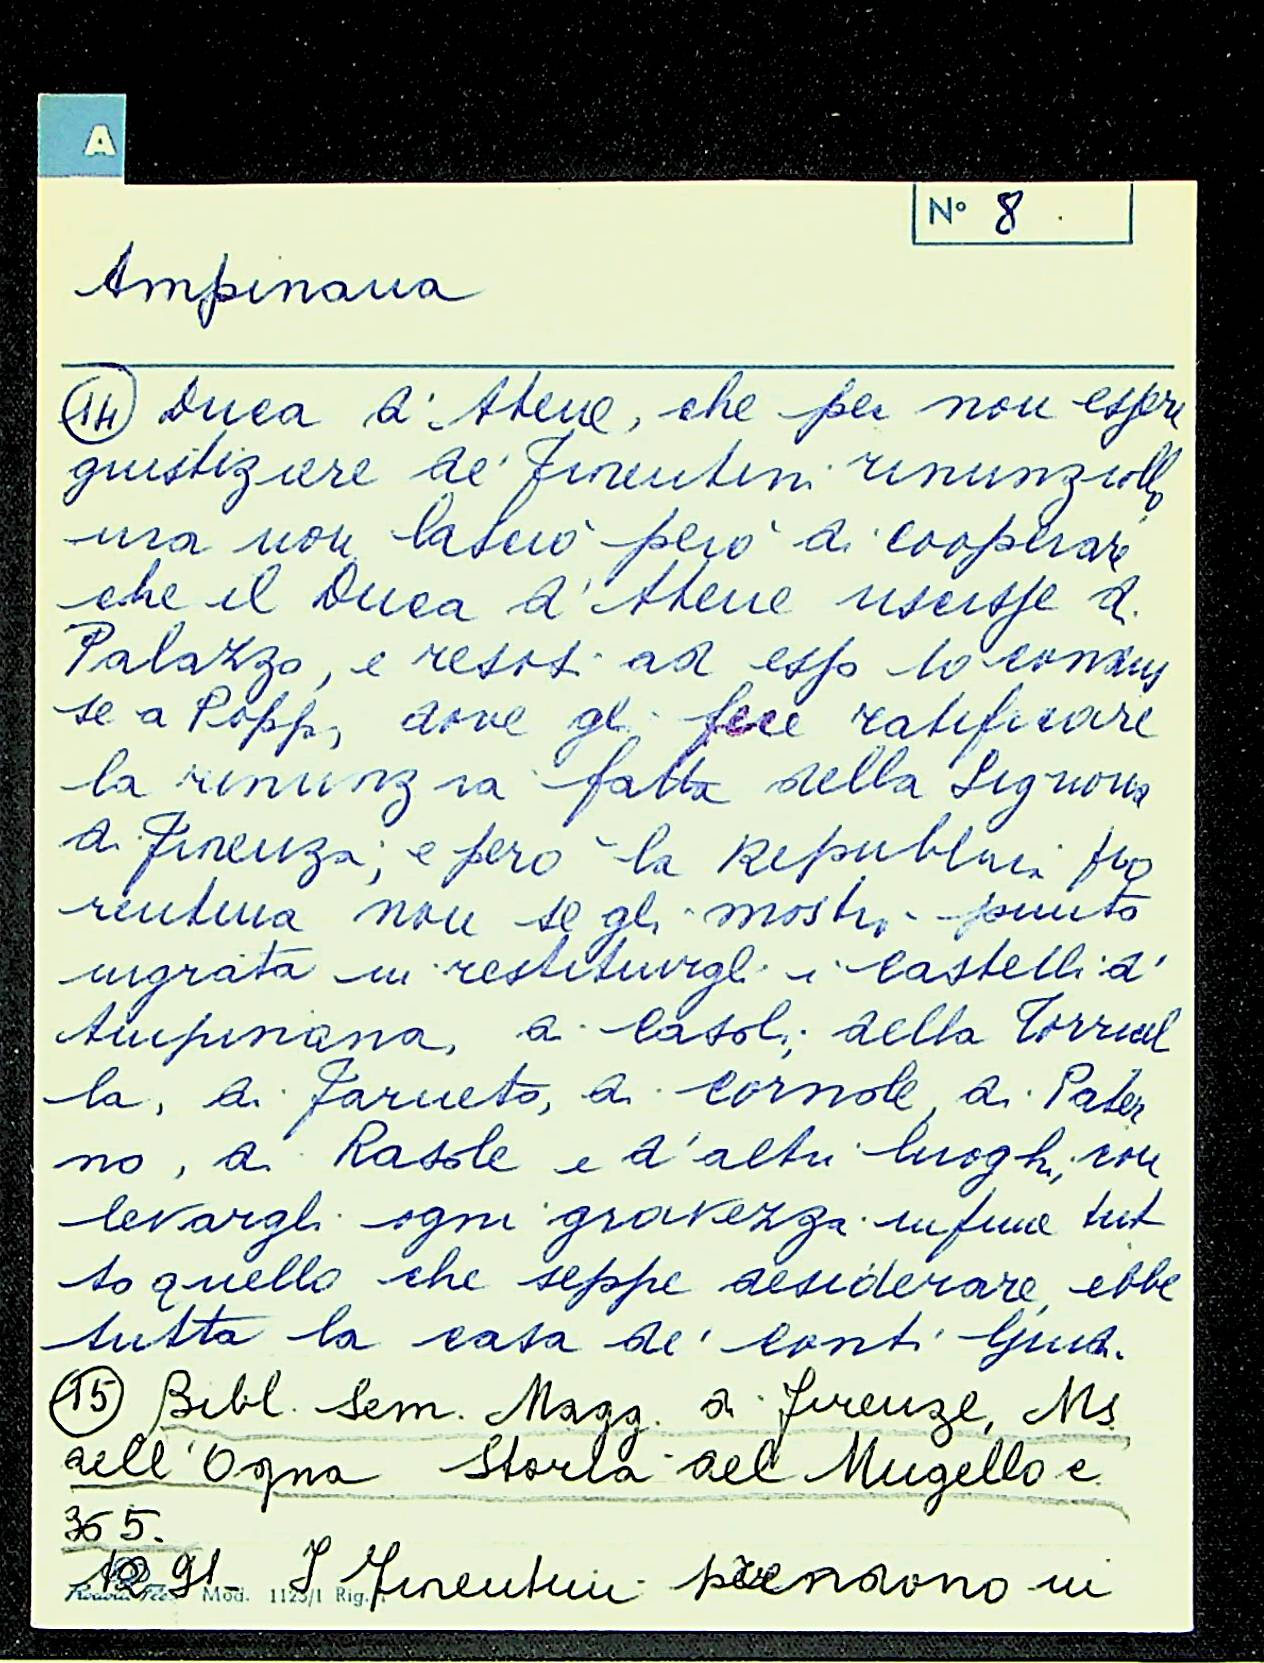 A
N° 8
Ampinana
14 Duca d'Atene, che per non essere
giustiziere de' Fiorentini rinunziollo
ma non lasciò però di cooperare
che il Duca d'Atene uscisse di
Palazzo, e resosi ad esso lo condus
se a Poppi, dove gli fece ratificare
la rinunzia fatta della Signoria
di Firenza; e però la Republica fio
rentina non se gli mostrò punto
ingrata in restituirgli i castelli d'
Ampinana, di Casoli, della Torricel
la, di Farneto, di Cornole, di Pater
no, di Rasole e d'altri luoghi, con
levargli ogni gravezza infine tut
to quello che seppe desiderare ebbe
tutta la casa de' conti Guidi.
15 Bibl. Sem. Magg. di Firenze, Ms.
dell'Ogna Storia del Mugello c.
365.
1291. I Fiorentini prendono in
Mod. 1125/1 Rig.